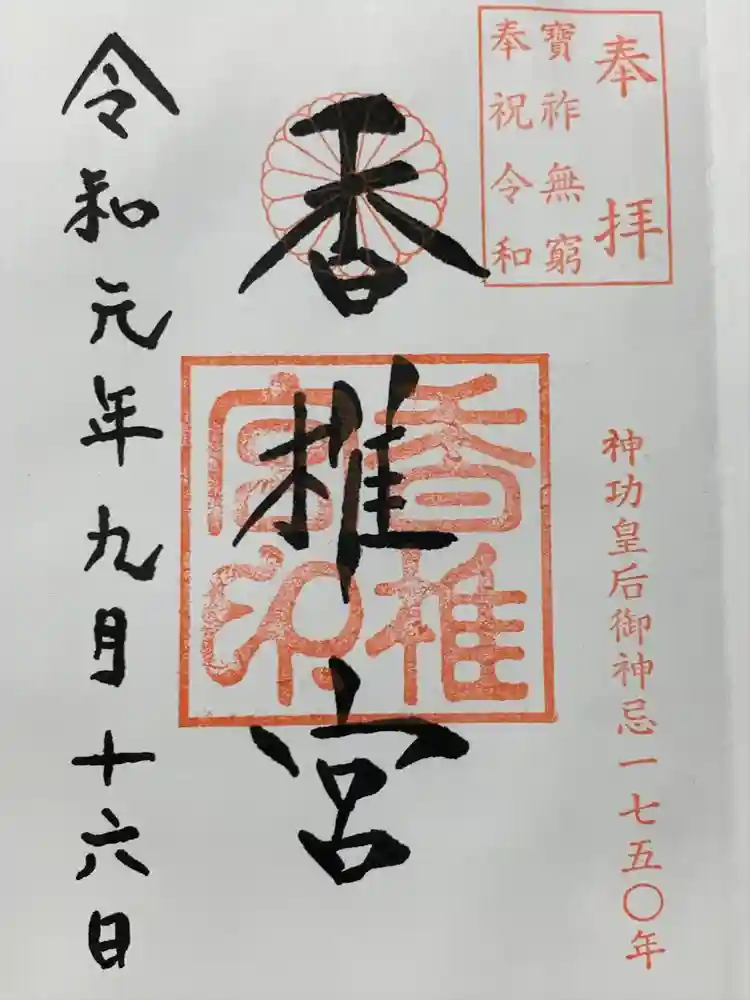 奉拝
寶祚無窮
奉祝令和
神功皇后御神忌一七五〇年
香椎宮
香椎
宮印
令和元年九月十六日